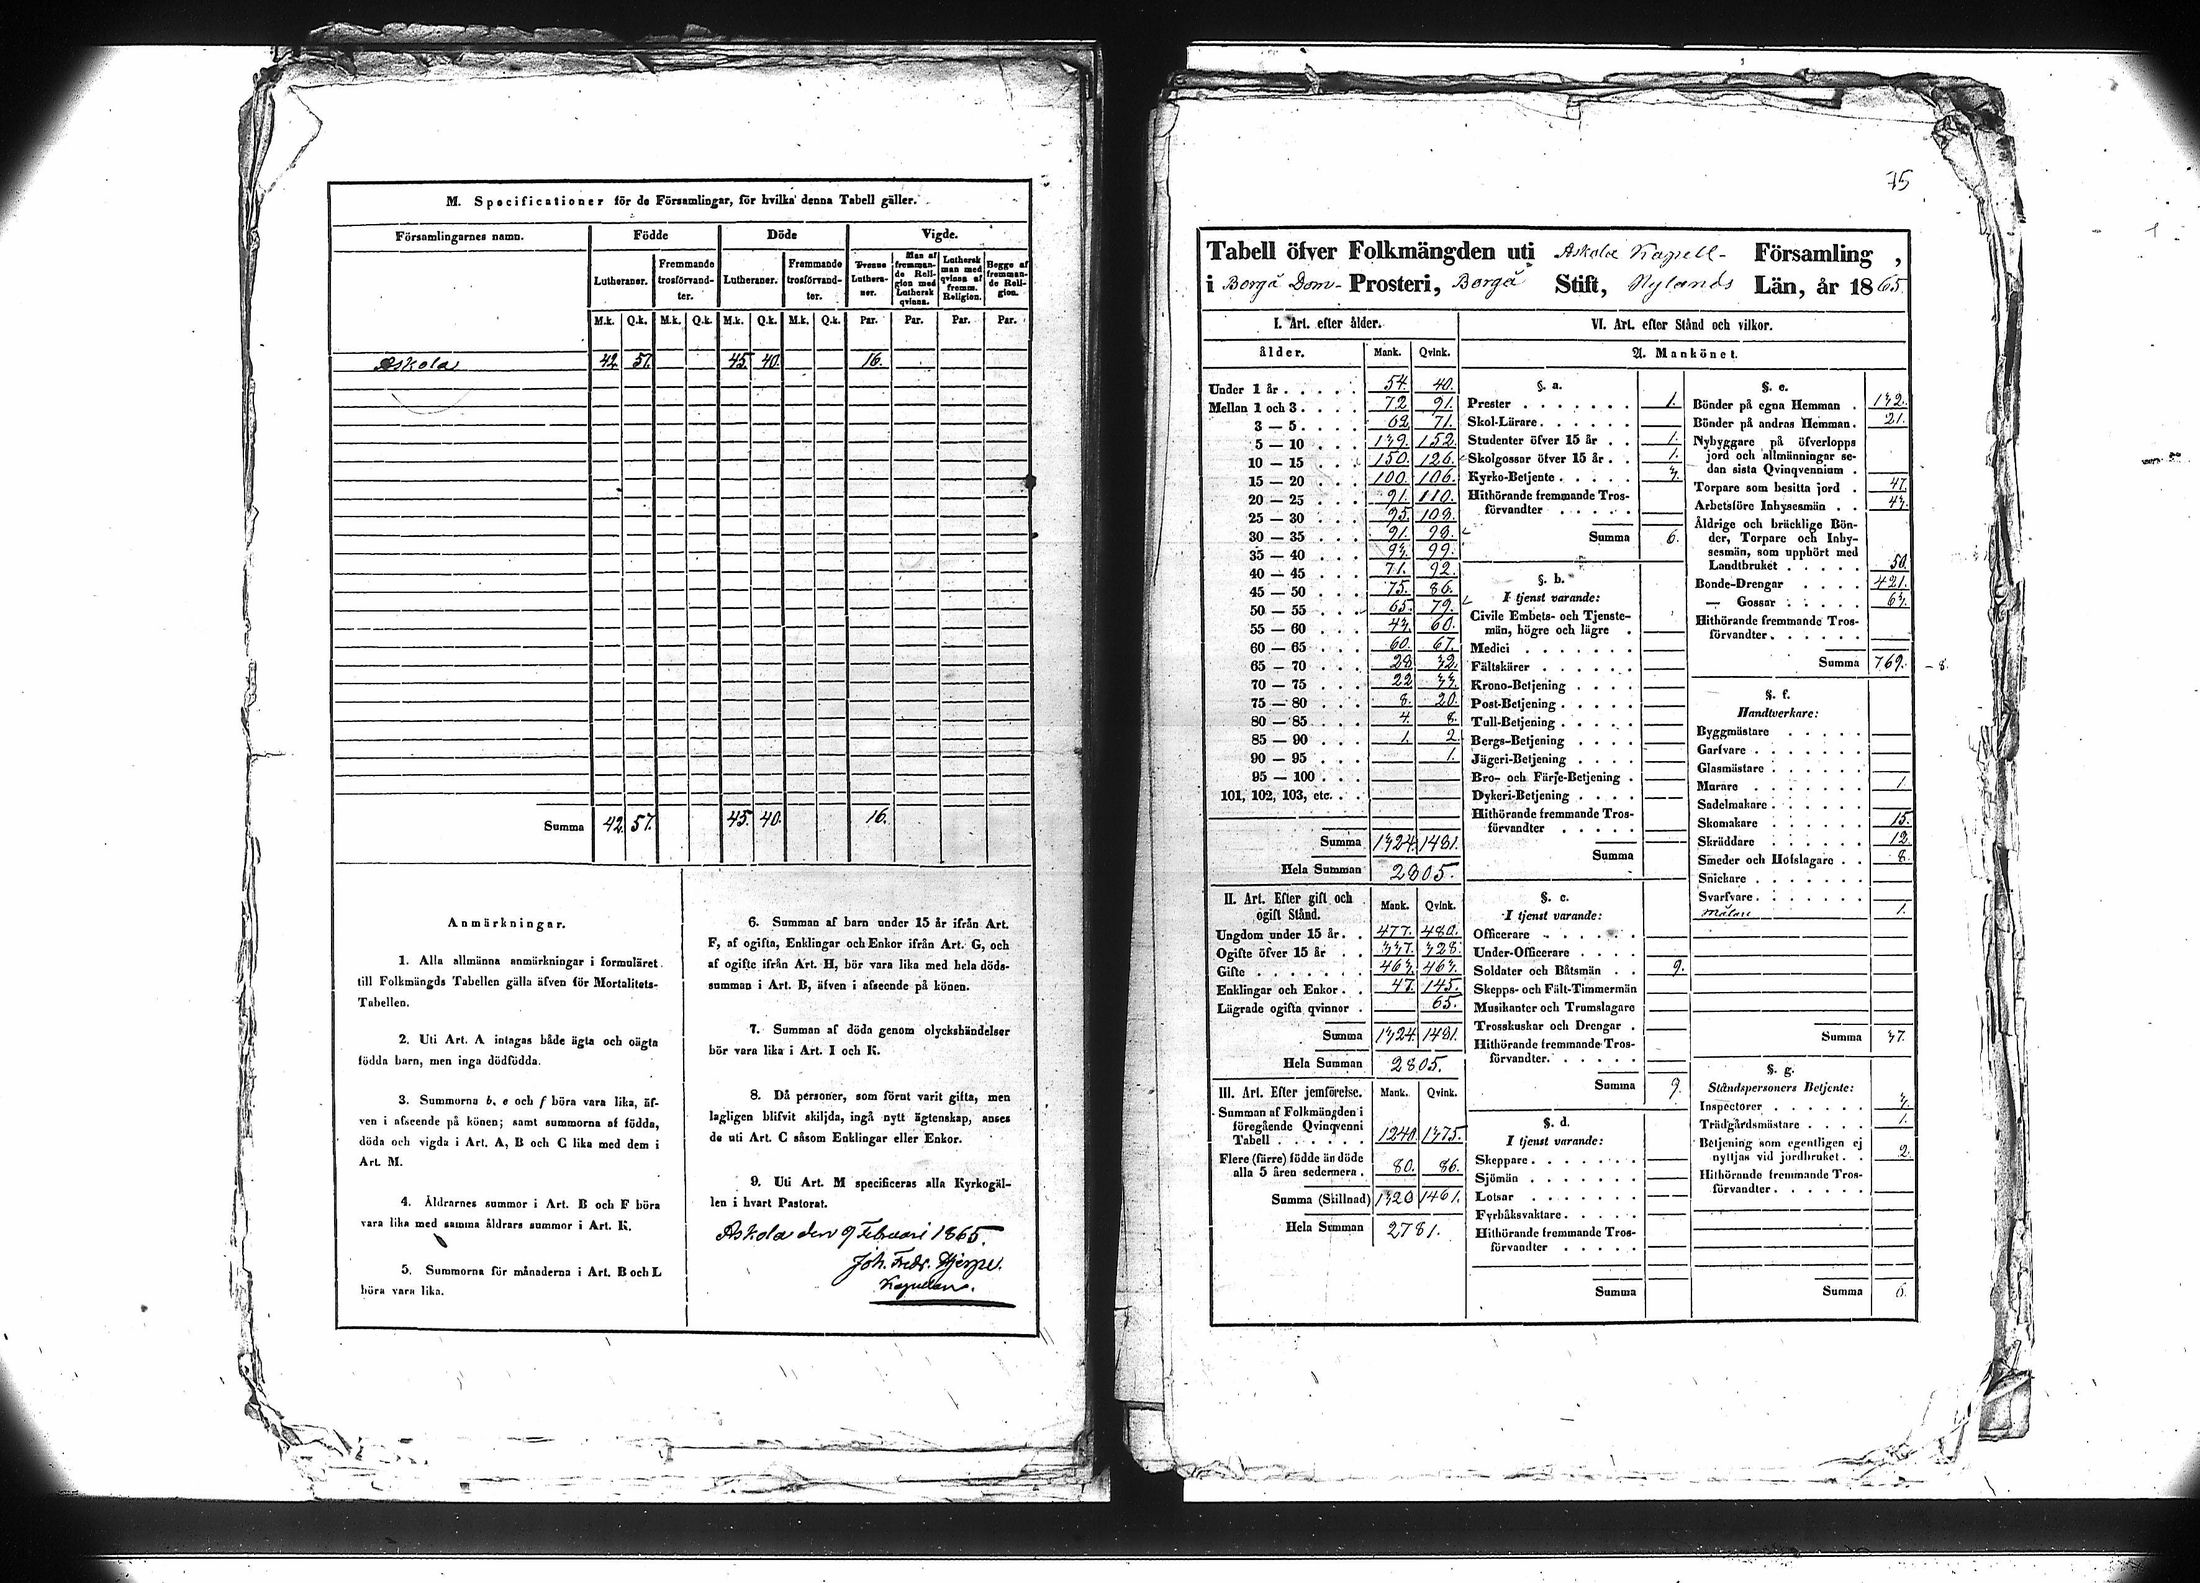 M. Specificationer för de Församlingar, för hvilka denna Tabell gäller.
Församlingarnes namn. Födde Döde Vigde.
Lutheraner. Fremmande trosförvandter. Lutheraner. Fremmande trosförvandter. Tvenne Lutheraner. Man af fremmande Religion med Luthersk qvinna. Luthersk man med qvinna af fremm. Religion. Begge af fremmande Religion.
M.k. Q.k. M.k. Q.k. M.k. Q.k. M.k. Q.k. Par. Par. Par. Par.
Askola 42 57. 45. 40. 16.
Summa 42 57. 45. 40. 16.
Anmärkningar.
1. Alla allmänna anmärkningar i formuläret
till Folkmängds Tabellen gälla äfven för Mortalitets-
Tabellen.
2. Uti Art. A intagas både ägta och oägta
födda barn, men inga dödfödda.
3. Summorna b, e och f böra vara lika, äf-
ven i afseende på könen; samt summorna af födda,
döda och vigda i Art. A, B och C lika med dem i
Art. M.
4. Åldrarnes summor i Art. B och F böra
vara lika med samma åldrars summor i Art. K.
5. Summorna för månaderna i Art. B och L
böra vara lika.
6. Summan af barn under 15 år ifrån Art.
F, af ogifta, Enklingar och Enkor ifrån Art. G, och
af ogifte ifrån Art. H, bör vara lika med hela döds-
summan i Art. B, äfven i afseende på könen.
7. Summan af döda genom olyckshändelser
bör vara lika i Art. I och K.
8. Då personer, som förut varit gifta, men
lagligen blifvit skiljda, ingå nytt ägtenskap, anses
de uti Art. C såsom Enklingar eller Enkor.
9. Uti Art. M specificeras alla Kyrkogäl-
len i hvart Pastorat.
Askola den 9 Februari 1865.
Joh. Fredr.
Kapellan.
75
Tabell öfver Folkmängden uti Askola Kapell- Församling,
i Borgå Dom- Prosteri, Borgå Stift, Nylands Län, år 1865.
I. Art. efter ålder.
ålder. Mank. Qvink.
Under 1 år 54. 40.
Mellan 1 och 3 72 91.
3 — 5 62 71.
5 — 10 139. 152
10 — 15 150. 126.
15 — 20 100. 106.
20 — 25 91. 110.
25 — 30 95. 108.
30 — 35 91. 98.
35 — 40 93. 99.
40 — 45 71. 92.
45 — 50 75. 86.
50 — 55 65. 79.
55 — 60 43. 60.
60 — 65 60. 67.
65 — 70 28 32.
70 — 75 22 33.
75 — 80 8. 20.
80 — 85 4. 8.
85 — 90 1. 2.
90 — 95 1.
95 — 100
101, 102, 103, etc.
Summa 1324. 1481.
Hela Summan 2805.
II. Art. Efter gift och ogift Stånd. Mank. Qvink.
Ungdom under 15 år 477. 480.
Ogifte öfver 15 år 337. 328.
Gifte 463. 463.
Enklingar och Enkor 47. 145.
Lägrade ogifta qvinnor 65.
Summa 1324 1481.
Hela Summan 2805.
III. Art. Efter jemförelse. Mank. Qvink.
Summan af Folkmängden i
föregående Qvinqvenni
Tabell 1240. 1375.
Flere (färre) födde än döde
alla 5 åren sedermera 80. 86.
Summa (Skillnad) 1320 1461.
Hela Summan 2781.
VI. Art. efter Stånd och vilkor.
A. Mankönet.
§. a.
Prester 1.
Skol-Lärare
Studenter öfver 15 år 1.
Skolgossar öfver 15 år 1.
Kyrko-Betjente 3.
Hithörande fremmande Tros-
förvandter
Summa 6.
§. b.
I tjenst varande:
Civile Embets- och Tjenste-
män, högre och lägre
Medici
Fältskärer
Krono-Betjening
Post-Betjening
Tull-Betjening
Bergs-Betjening
Jägeri-Betjening
Bro- och Färje-Betjening
Dykeri-Betjening
Hithörande fremmande Tros-
förvandter
Summa
§. c.
I tjenst varande:
Officerare
Under-Officerare
Soldater och Båtsmän 9.
Skepps- och Fält-Timmermän
Musikanter och Trumslagare
Trosskuskar och Drengar
Hithörande fremmande Tros-
förvandter.
Summa 9.
§. d.
I tjenst varande:
Skeppare
Sjömän
Lotsar
Fyrbåksvaktare
Hithörande fremmande Tros-
förvandter
Summa
§. e.
Bönder på egna Hemman 132.
Bönder på andras Hemman 21.
Nybyggare på öfverlopps
jord och allmänningar se-
dan sista Qvinqvennium
Torpare som besitta jord 47.
Arbetsföre Inhysesmän 43.
Åldrige och bräcklige Bön-
der, Torpare och Inhy-
sesmän, som upphört med
Landtbruket 50.
Bonde-Drengar 421.
— Gossar 63.
Hithörande fremmande Tros-
förvandter
Summa 769. - 8.
§. f.
Handtverkare:
Byggmästare
Garfvare
Glasmästare
Murare 1.
Sadelmakare
Skomakare 15.
Skräddare 12.
Smeder och Hofslagare 8.
Snickare
Svarfvare
Målare 1.
Summa 37.
§. g.
Ståndspersoners Betjente:
Inspectorer 3.
Trädgårdsmästare 1.
Betjening som egentligen ej
nyttjas vid jordbruket 2.
Hithörande fremmande Tros-
förvandter
Summa 6.